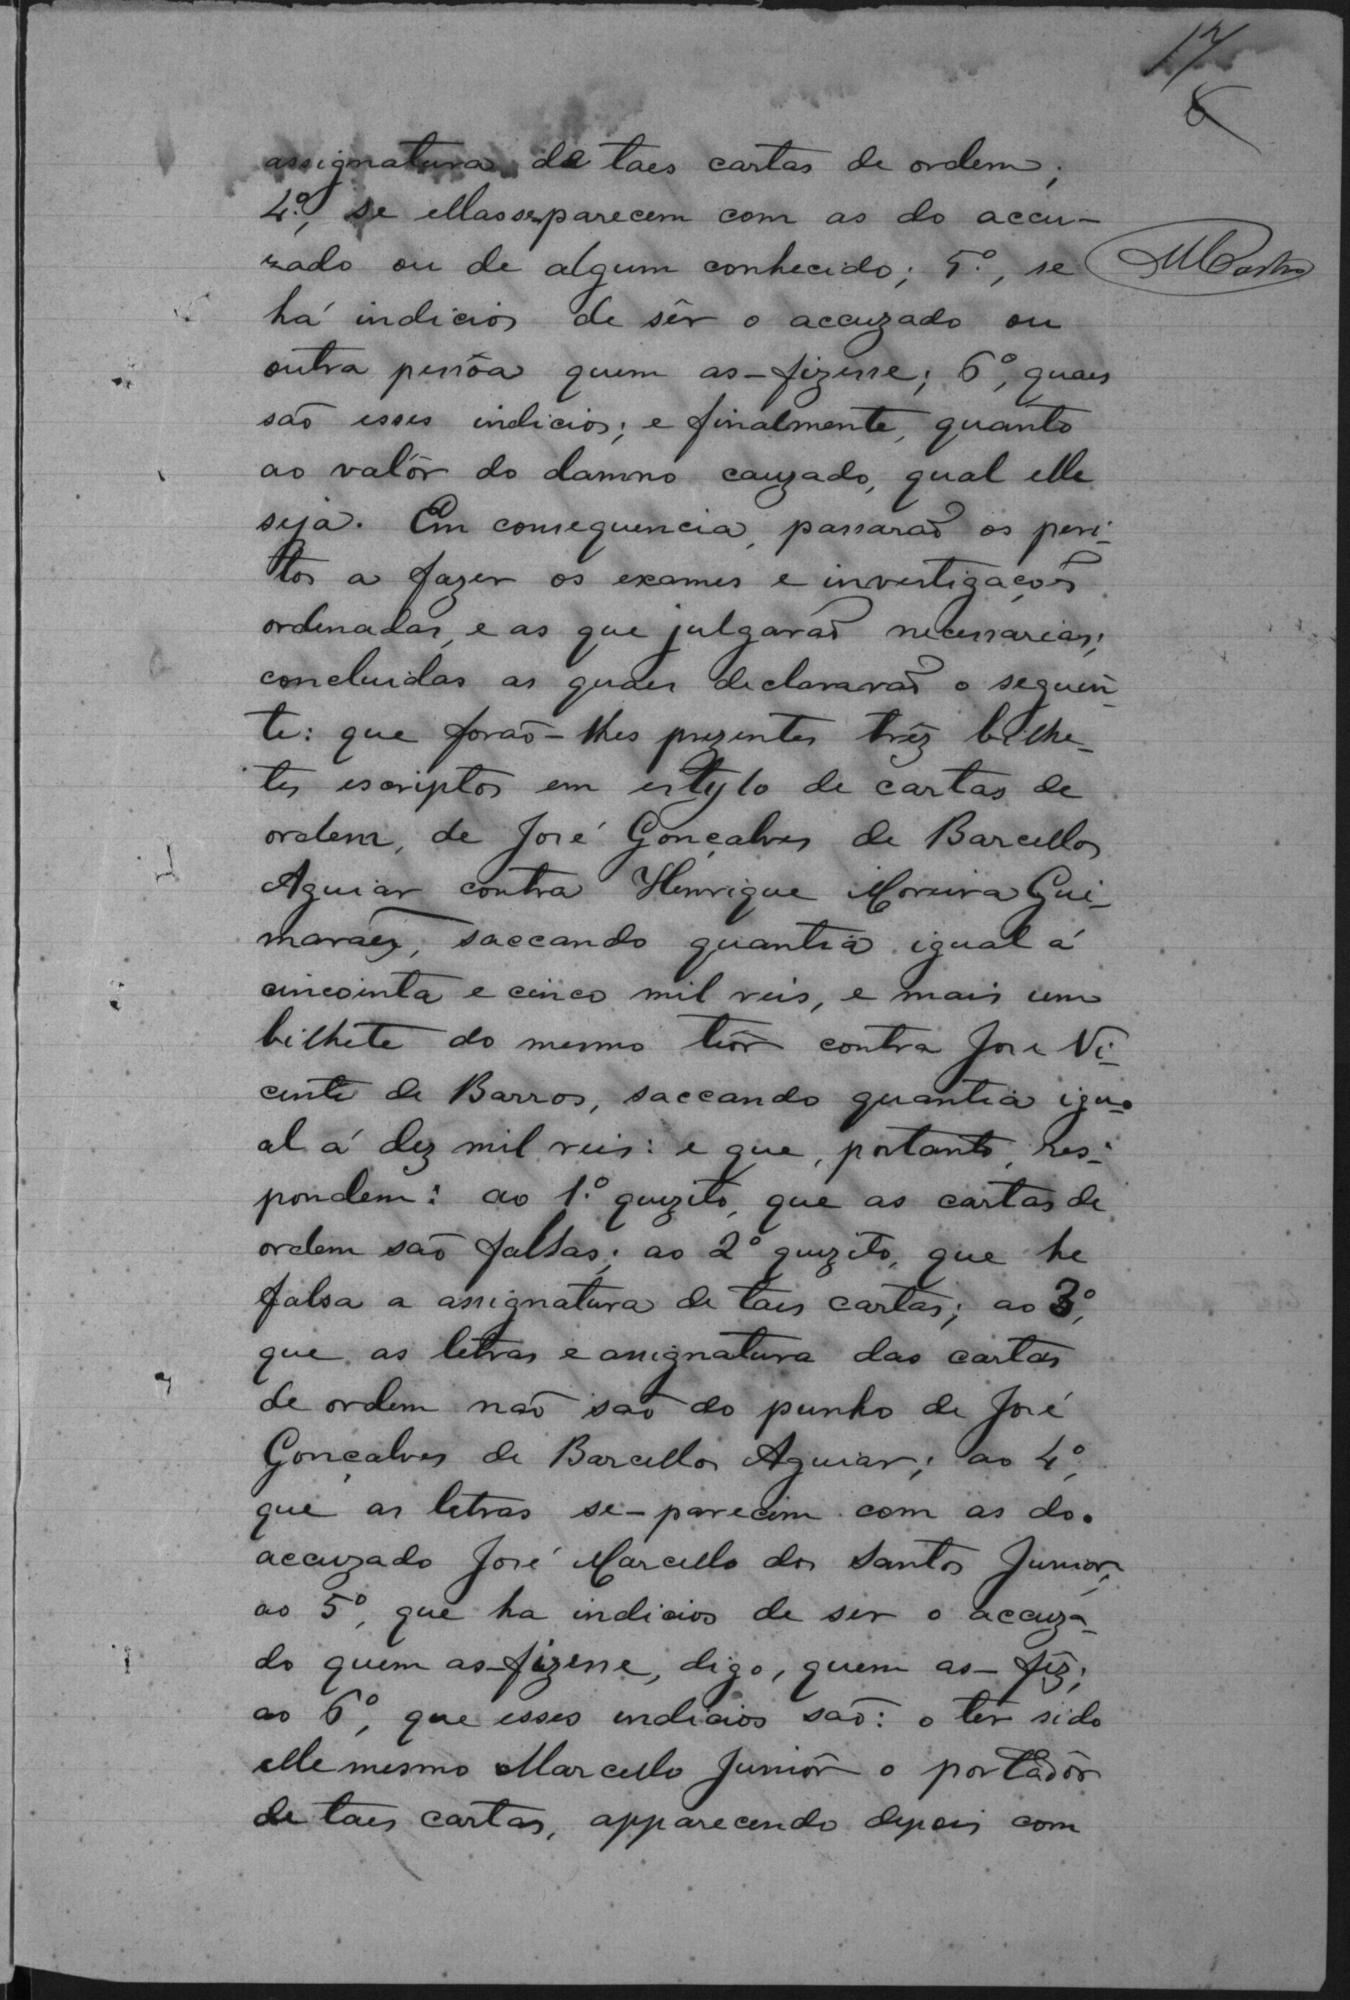 17
8
assignatura de taes cartas de ordem;
4.º, se ellas se parecem com as do accu-
MCastro
zado ou de algum conhecido; 5.º, se
há indicios de sêr o accuzado ou
outra pessôa quem as-fizesse; 6º, quaes
são esses indicios; e finalmente, quanto
ao valôr do damno cauzado, qual elle
seja. Em consequencia, passarão os peri-
tos a fazer os exames e investigações
ordenadas, e as que julgarão necessarias;
concluidas as quaes declararão o seguin-
te: que forão-lhes prezentes trêz bilhe-
tes escriptos em estylo de cartas de
ordem, de José Gonçalves de Barcellos
Aguiar contra Henrique Moreira Gui-
marães, saccando quantia igual á
cincointa e cinco mil reis, e mais um
bilhete do mesmo teôr contra José Vi-
cente de Barros, saccando quantia igu-
al á dez mil reis: e que, portanto, res-
pondem: ao 1.º quezito, que as cartas de
ordem são falsas; ao 2º quezito, que he
falsa a assignatura de taes cartas; ao 3º,
que as letras e assignatura das cartas
de ordem não são do punho de José
Gonçalves de Barcellos Aguiar; ao 4º,
que as letras se-parecem com as do
accuzado José Marcello dos Santos Junior;
ao 5º, que ha indicios de ser o accuza-
do quem as-fizesse, digo, quem as-fêz;
ao 6º, que esses indicios são: o têr sido
elle mesmo Marcello Juniôr o portadôr
de taes cartas, apparecendo depois com